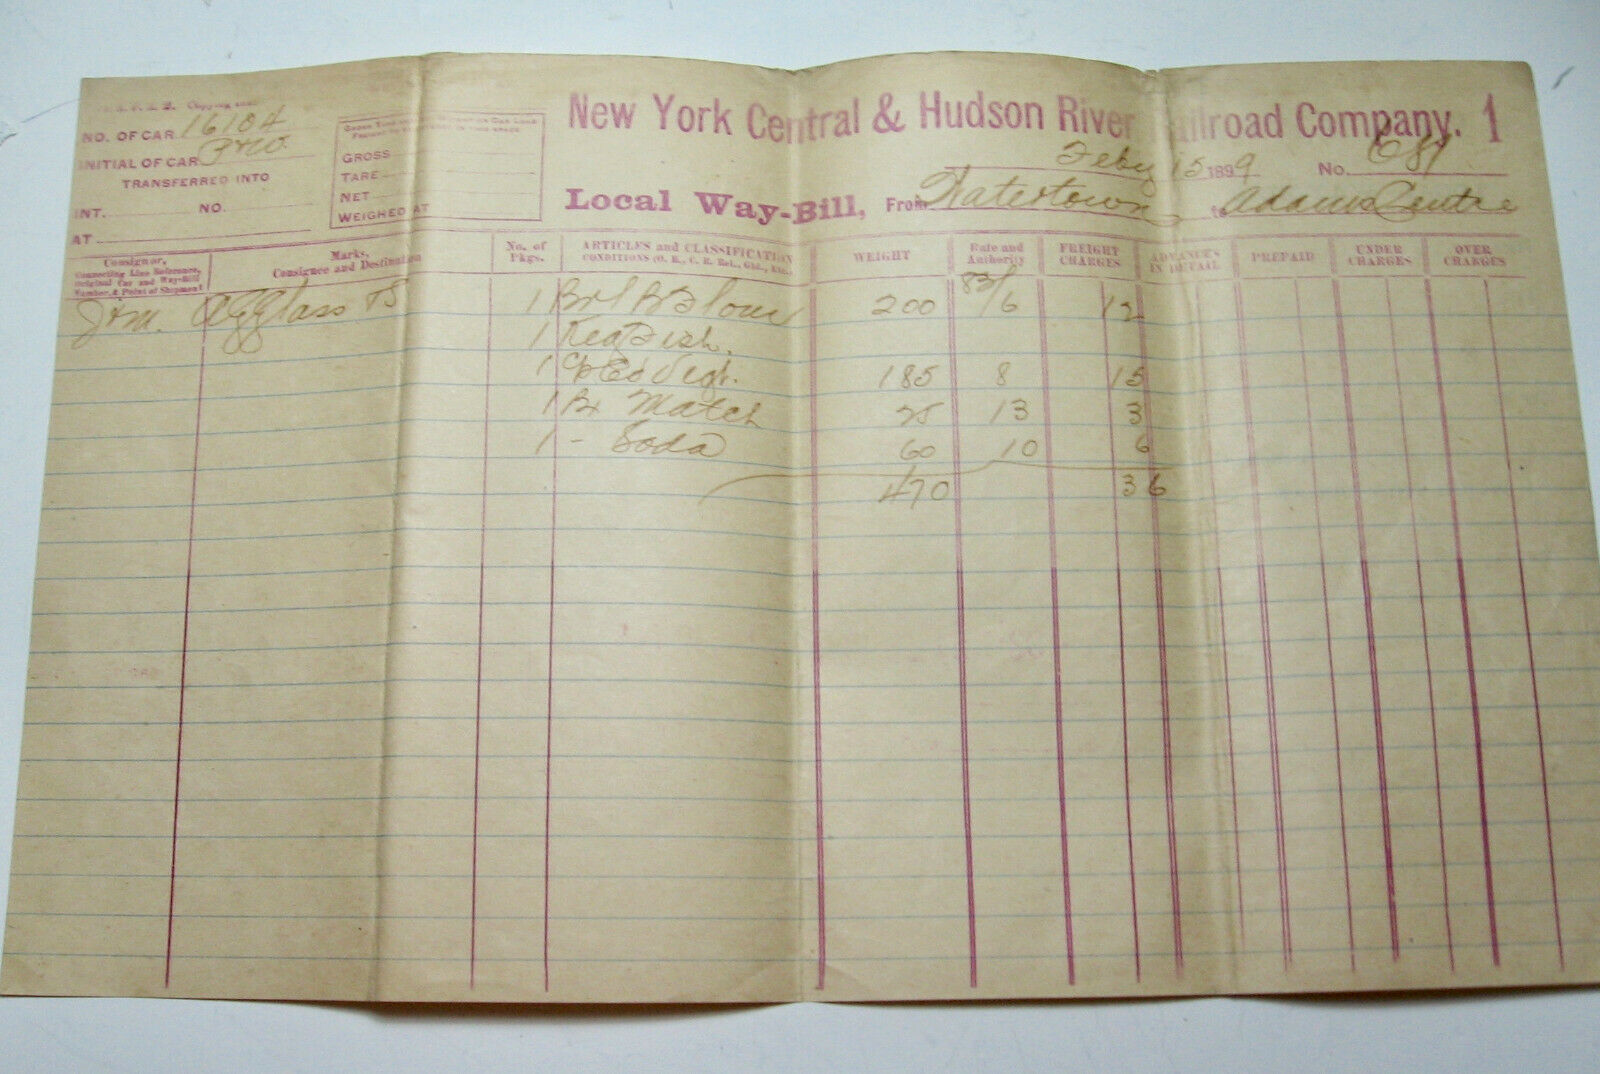 New York Central & Hudson River Railroad Company. 1
NO. OF CAR 16104
INITIAL OF CAR
TRANSFERRED INTO
INT. NO.
AT
GROSS
TARE
NET
WEIGHED AT
Feby 15 1899 No. 681
Local Way-Bill, From Watertown to Adams Centre
Consignor, Connecting Line Reference, Original Car and Way-Bill Number, & Point of Shipment
Marks, Consignee and Destination
No. of Pkgs.
ARTICLES and CLASSIFICATION
CONDITIONS (O. R., C. R. Rel., Gld., Etc.)
WEIGHT
Rate and Authority
FREIGHT CHARGES
ADVANCES IN DETAIL
PREPAID
UNDER CHARGES
OVER CHARGES
1 Brl B Flour 200 82/6 12
1 Keg Fish.
1 185 8 15
1 Bx Match 25 13 3
1 - Soda 60 10 6
470 36